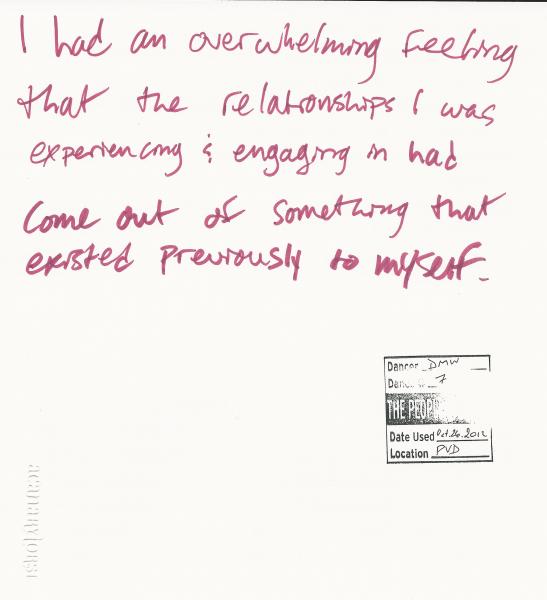 I had an overwhelming feeling
that the relationships I was
experiencing & engaging in had
come out of something that
existed previously to myself.
Dancer DMW
7
THE PEOP
Date Used Oct. 26. 2012
Location PVD
acanaryforsi